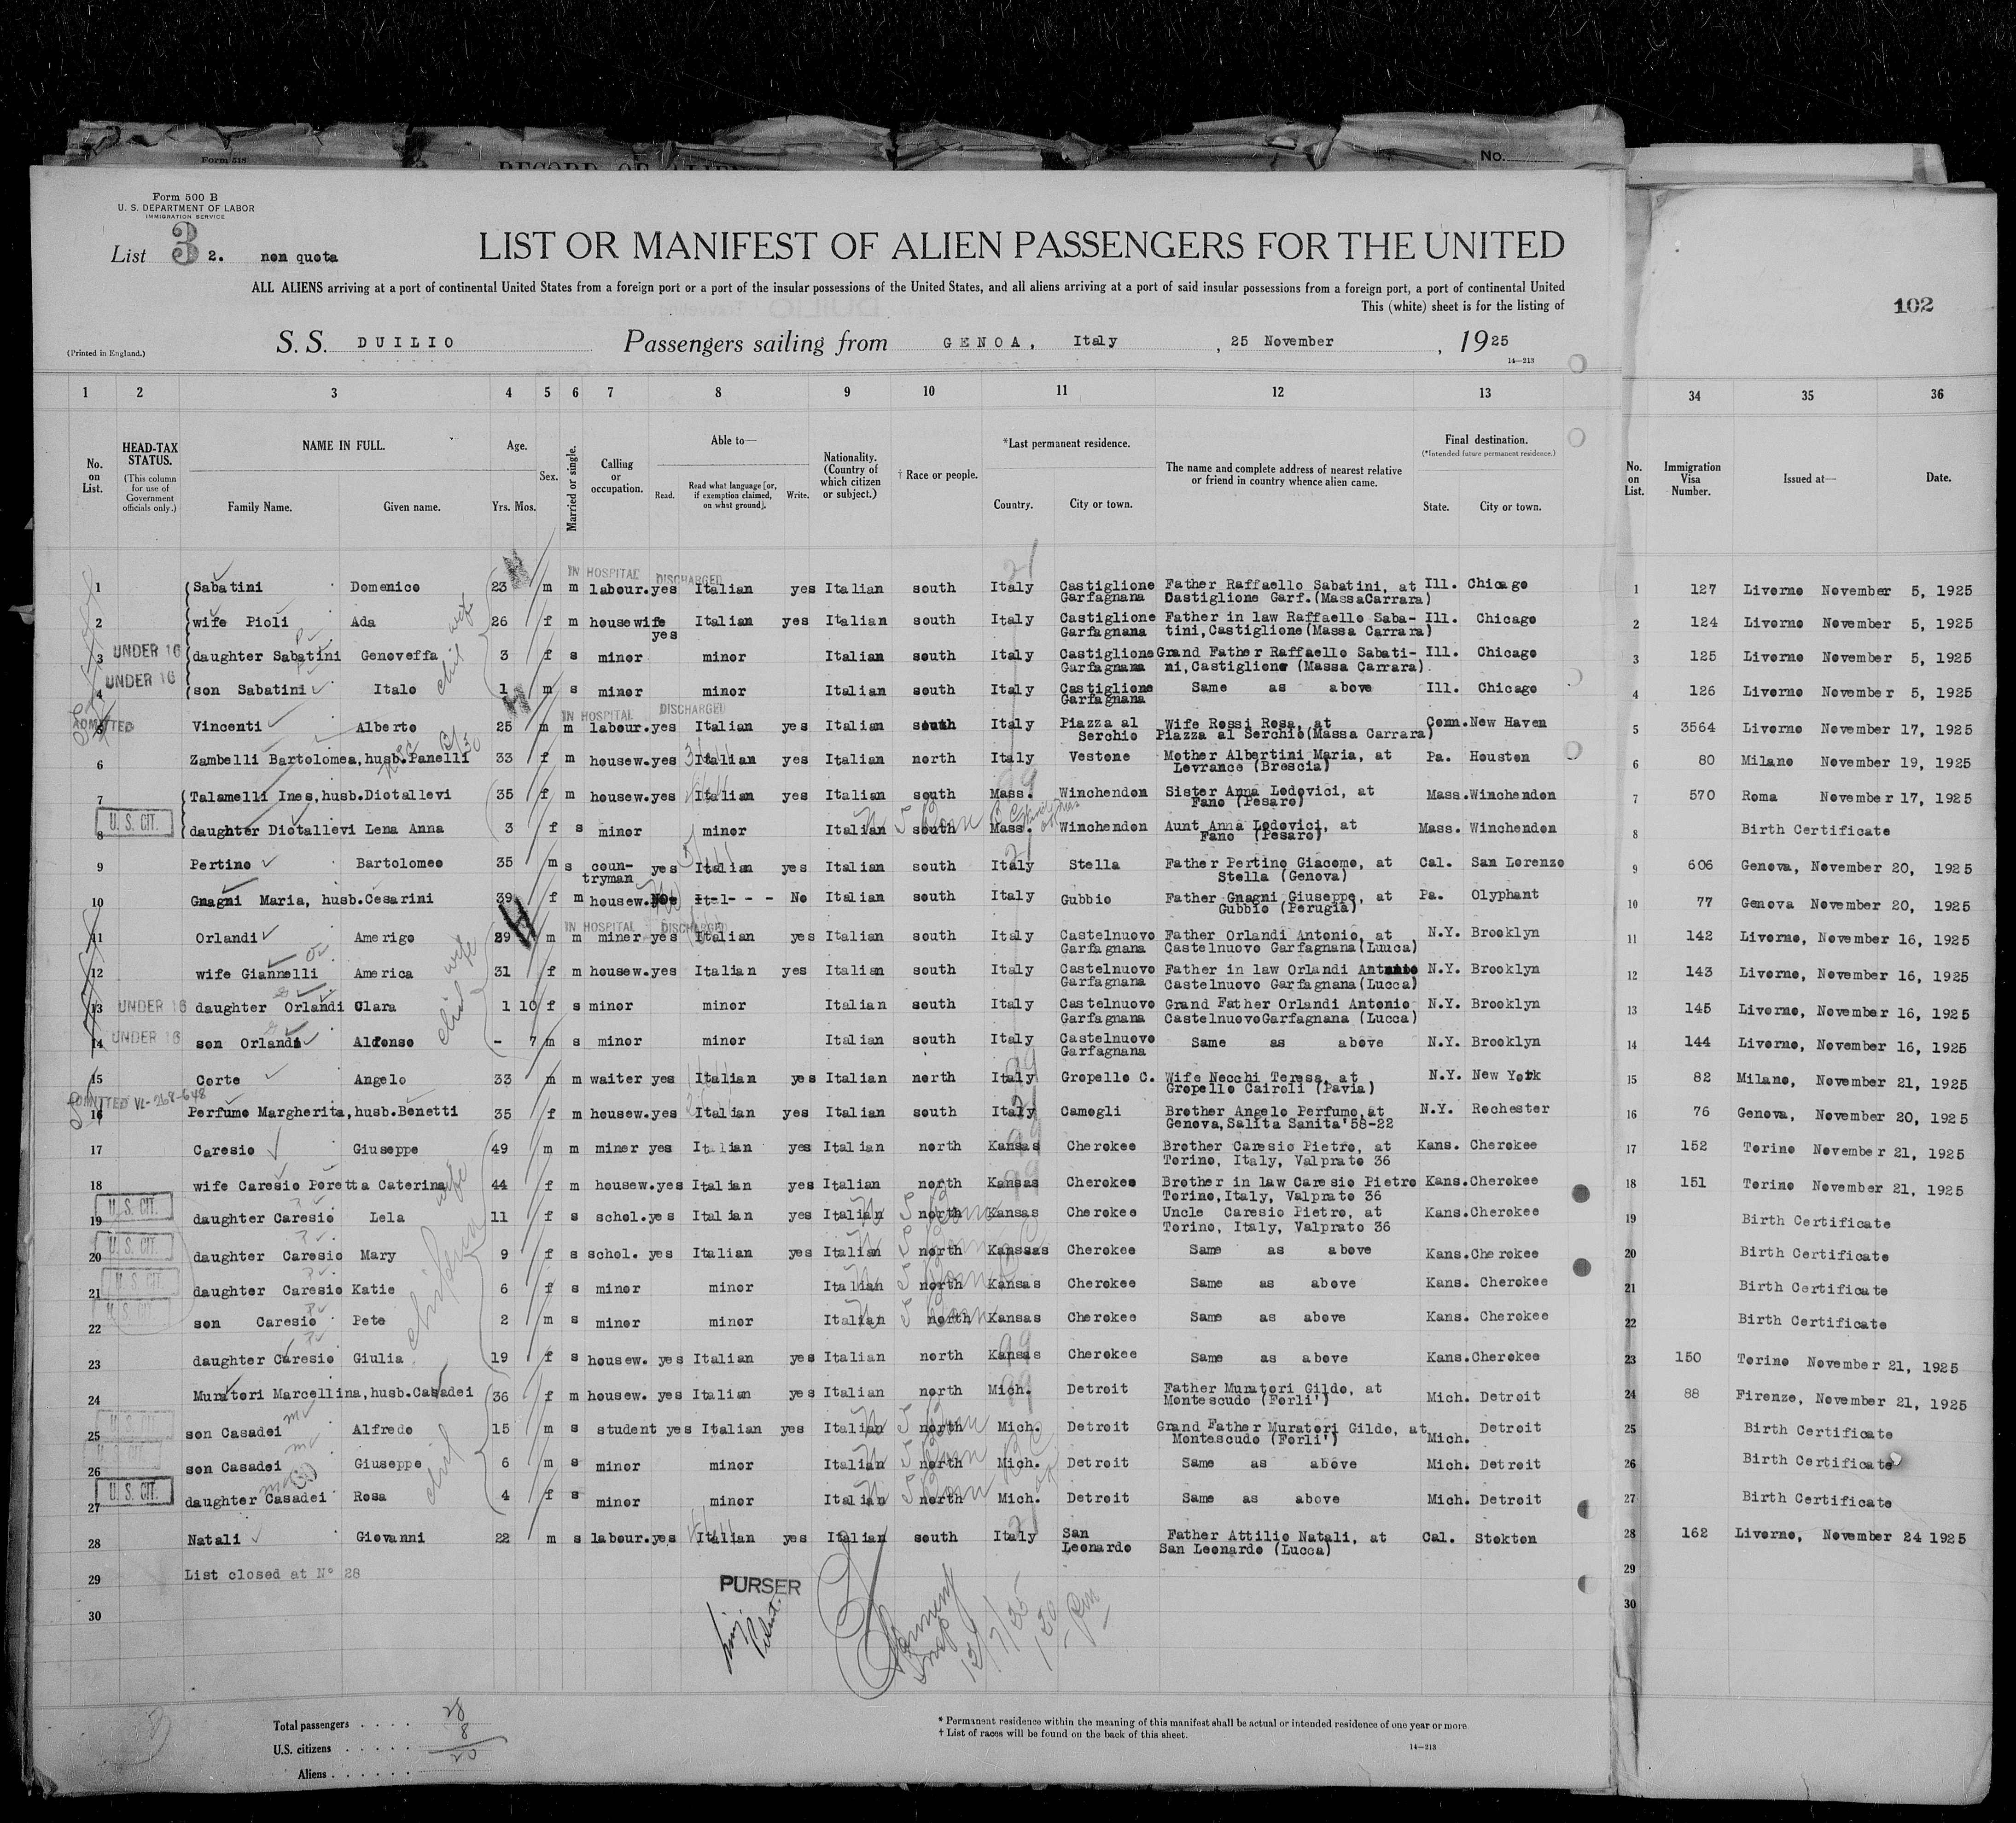 Form 518
RECORD OF ALIEN
No.
Form 500 B
U. S. DEPARTMENT OF LABOR
IMMIGRATION SERVICE
List 3 2. non quota
LIST OR MANIFEST OF ALIEN PASSENGERS FOR THE UNITED
ALL ALIENS arriving at a port of continental United States from a foreign port or a port of the insular possessions of the United States, and all aliens arriving at a port of said insular possessions from a foreign port, a port of continental United
This (white) sheet is for the listing of
102
(Printed in England.)
S. S. DUILIO Passengers sailing from GENOA, Italy , 25 November , 1925
14—213
1 2 3 4 5 6 7 8 9 10 11 12 13 34 35 36
No. on List.
HEAD-TAX STATUS.
(This column for use of Government officials only.)
NAME IN FULL.
Family Name. Given name.
Age.
Yrs. Mos.
Sex.
Married or single.
Calling or occupation.
Able to—
Read. Read what language [or, if exemption claimed, on what ground]. Write.
Nationality. (Country of which citizen or subject.)
† Race or people.
*Last permanent residence.
Country. City or town.
The name and complete address of nearest relative or friend in country whence alien came.
Final destination.
(*Intended future permanent residence.)
State. City or town.
No. on List.
Immigration Visa Number.
Issued at—
Date.
IN HOSPITAL DISCHARGED
1 Sabatini Domenico 23 m m labour. yes Italian yes Italian south Italy Castiglione Garfagnana Father Raffaello Sabatini, at Dastiglione Garf.(MassaCarrara) Ill. Chicago 1 127 Livorno November 5, 1925
2 wife Pioli Ada wife 26 f m housewife yes Italian yes Italian south Italy Castiglione Garfagnana Father in law Raffaello Saba-tini,Castiglione(Massa Carrara) Ill. Chicago 2 124 Livorno November 5, 1925
3 UNDER 16 daughter Sabatini Genoveffa 3 f s minor minor Italian south Italy Castiglione Garfagnana Grand Father Raffaello Sabati-ni,Castiglione (Massa Carrara) Ill. Chicago 3 125 Livorno November 5, 1925
4 UNDER 16 son Sabatini Italo 1 m s minor minor Italian south Italy Castiglione Garfagnana Same as above Ill. Chicago 4 126 Livorno November 5, 1925
IN HOSPITAL DISCHARGED
5 ADMITTED Vincenti Alberto 25 m m labour. yes Italian yes Italian south Italy Piazza al Serchio Wife Rossi Rosa, at Piazza al Serchio(Massa Carrara) Conn. New Haven 5 3564 Livorno November 17, 1925
6 Zambelli Bartolomea, husb.Panelli 33 f m housew. yes Italian yes Italian north Italy Vestone Mother Albertini Maria, at Levrance (Brescia) Pa. Houston 6 80 Milano November 19, 1925
7 Talamelli Ines, husb.Diotallevi 35 f m housew. yes Italian yes Italian south Mass. Winchendon Sister Anna Lodovici, at Fano (Pesaro) Mass. Winchendon 7 570 Roma November 17, 1925
8 U. S. CIT. daughter Diotallevi Lena Anna 3 f s minor minor Italian south Mass. Winchendon Aunt Anna Lodovici, at Fano (Pesaro) Mass. Winchendon 8 Birth Certificate
9 Pertino Bartolomeo 35 m s coun-tryman yes Italian yes Italian south Italy Stella Father Pertino Giacomo, at Stella (Genova) Cal. San Lorenzo 9 606 Genova, November 20, 1925
10 Gnagni Maria, husb.Cesarini 39 f m housew. No Ital--- No Italian south Italy Gubbio Father Gnagni Giuseppe, at Gubbio (Perugia) Pa. Olyphant 10 77 Genova November 20, 1925
IN HOSPITAL DISCHARGED
11 Orlandi Amerigo 29 m m miner yes Italian yes Italian south Italy Castelnuovo Garfagnana Father Orlandi Antonio, at Castelnuovo Garfagnana(Lucca) N.Y. Brooklyn 11 142 Livorno, November 16, 1925
12 wife Giannelli America wife 31 f m housew. yes Italian yes Italian south Italy Castelnuovo Garfagnana Father in law Orlandi Antonio Castelnuovo Garfagnana(Lucca) N.Y. Brooklyn 12 143 Livorno, November 16, 1925
13 UNDER 16 daughter Orlandi Clara 1 10 f s minor minor Italian south Italy Castelnuovo Garfagnana Grand Father Orlandi Antonio CastelnuovoGarfagnana (Lucca) N.Y. Brooklyn 13 145 Livorno, November 16, 1925
14 UNDER 16 son Orlandi Alfonso - 7 m s minor minor Italian south Italy Castelnuovo Garfagnana Same as above N.Y. Brooklyn 14 144 Livorno, November 16, 1925
15 Corte Angelo 33 m m waiter yes Italian yes Italian north Italy Gropello C. Wife Necchi Teresa, at Gropello Cairoli (Pavia) N.Y. New York 15 82 Milano, November 21, 1925
16 ADMITTED VL-268-648 Perfumo Margherita, husb.Benetti 35 f m housew. yes Italian yes Italian south Italy Camogli Brother Angelo Perfumo,at Genova, Salita Sanita'58-22 N.Y. Rochester 16 76 Genova, November 20, 1925
17 Caresio Giuseppe 49 m m miner yes Italian yes Italian north Kansas Cherokee Brother Caresio Pietro, at Torino, Italy, Valprato 36 Kans. Cherokee 17 152 Torino November 21, 1925
18 wife Caresio Peretta Caterina wife 44 f m housew. yes Italian yes Italian north Kansas Cherokee Brother in law Caresio Pietro Torino,Italy, Valprato 36 Kans. Cherokee 18 151 Torino November 21, 1925
19 U. S. CIT. daughter Caresio Lela children 11 f s schol. yes Italian yes Italian north Kansas Cherokee Uncle Caresio Pietro, at Torino, Italy, Valprato 36 Kans. Cherokee 19 Birth Certificate
20 U. S. CIT. daughter Caresio Mary 9 f s schol. yes Italian yes Italian north Kanssas Cherokee Same as above Kans. Cherokee 20 Birth Certificate
21 U. S. CIT. daughter Caresio Katie 6 f s minor minor Italian north Kansas Cherokee Same as above Kans. Cherokee 21 Birth Certificate
22 U. S. CIT. son Caresio Pete 2 m s minor minor Italian north Kansas Cherokee Same as above Kans. Cherokee 22 Birth Certificate
23 daughter Caresio Giulia 19 f s housew. yes Italian yes Italian north Kansas Cherokee Same as above Kans. Cherokee 23 150 Torino November 21, 1925
24 Muratori Marcellina, husb.Casadei 36 f m housew. yes Italian yes Italian north Mich. Detroit Father Muratori Gildo, at Montescudo (Forli') Mich. Detroit 24 88 Firenze, November 21, 1925
25 son Casadei Alfredo 15 m s student yes Italian yes Italian north Mich. Detroit Grand Father Muratori Gildo, at Montescudo (Forli') Mich. Detroit 25 Birth Certificate
26 son Casadei Giuseppe 6 m s minor minor Italian north Mich. Detroit Same as above Mich. Detroit 26 Birth Certificate
27 U. S. CIT. daughter Casadei Rosa 4 f s minor minor Italian north Mich. Detroit Same as above Mich. Detroit 27 Birth Certificate
28 Natali Giovanni 22 m s labour. yes Italian yes Italian south Italy San Leonardo Father Attilio Natali, at San Leonardo (Lucca) Cal. Stokton 28 162 Livorno, November 24 1925
29 List closed at N° 28 29
30 30
PURSER
12/7/25
Total passengers . . . . 28
U.S. citizens . . . . . 8
Aliens . . . . . . 20
* Permanent residence within the meaning of this manifest shall be actual or intended residence of one year or more
† List of races will be found on the back of this sheet.
14—213